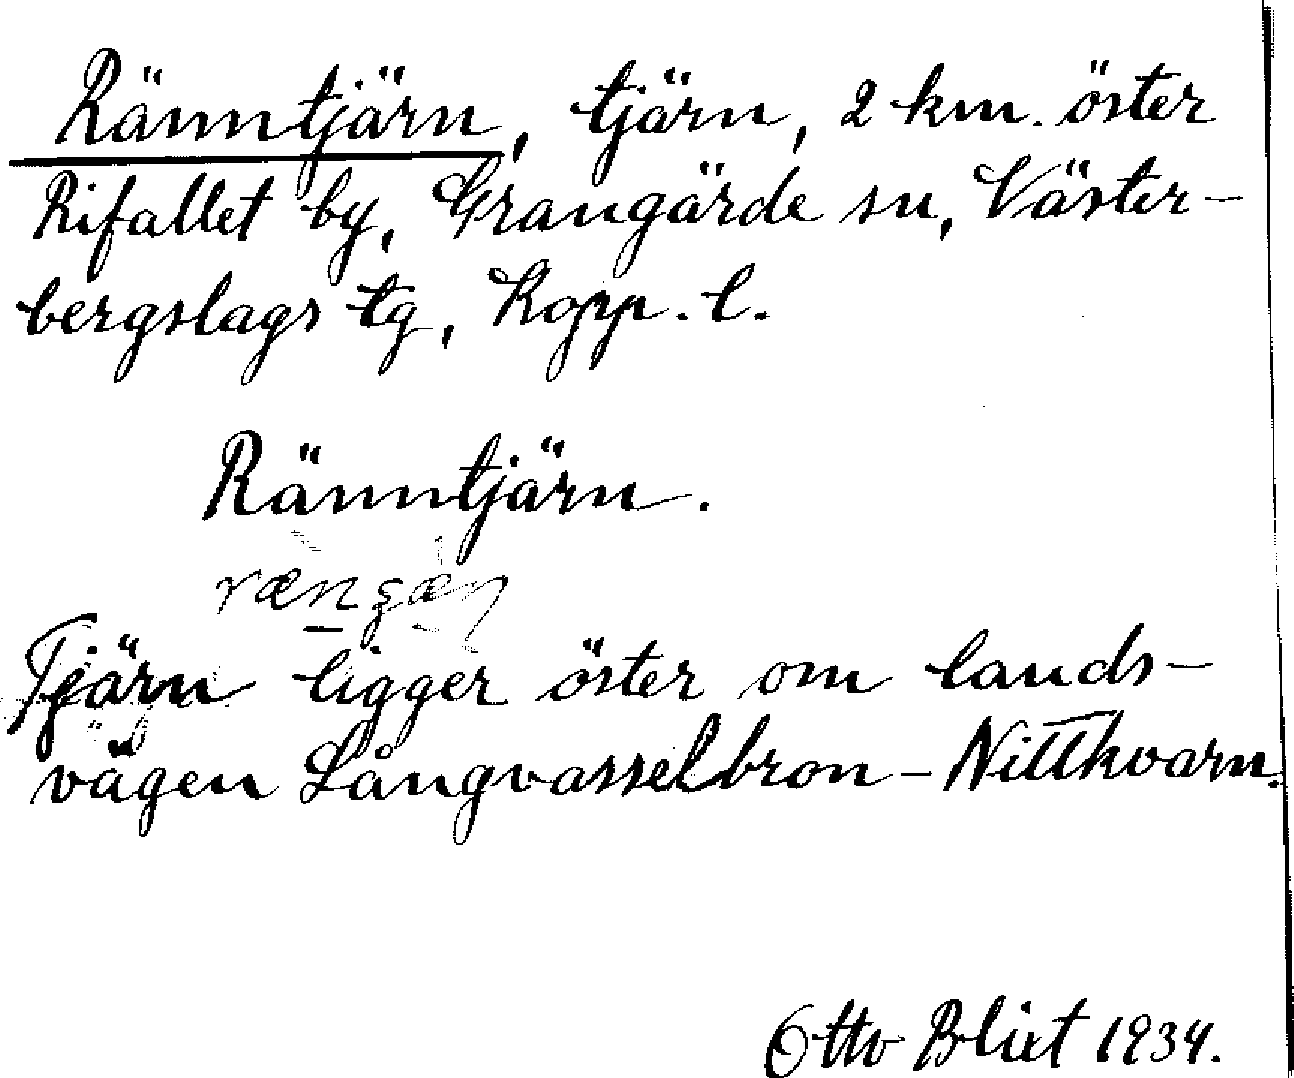 Ränntjärn, tjärn, 2 km. öster
Rifallet by, Grangärde sn, Väster-
bergslags tg, Kopp. l.
Ränntjärn.
Tjärn ligger öster om lands-
vägen Långvasselbron - Nittkvarn.
Otto Blixt 1934.